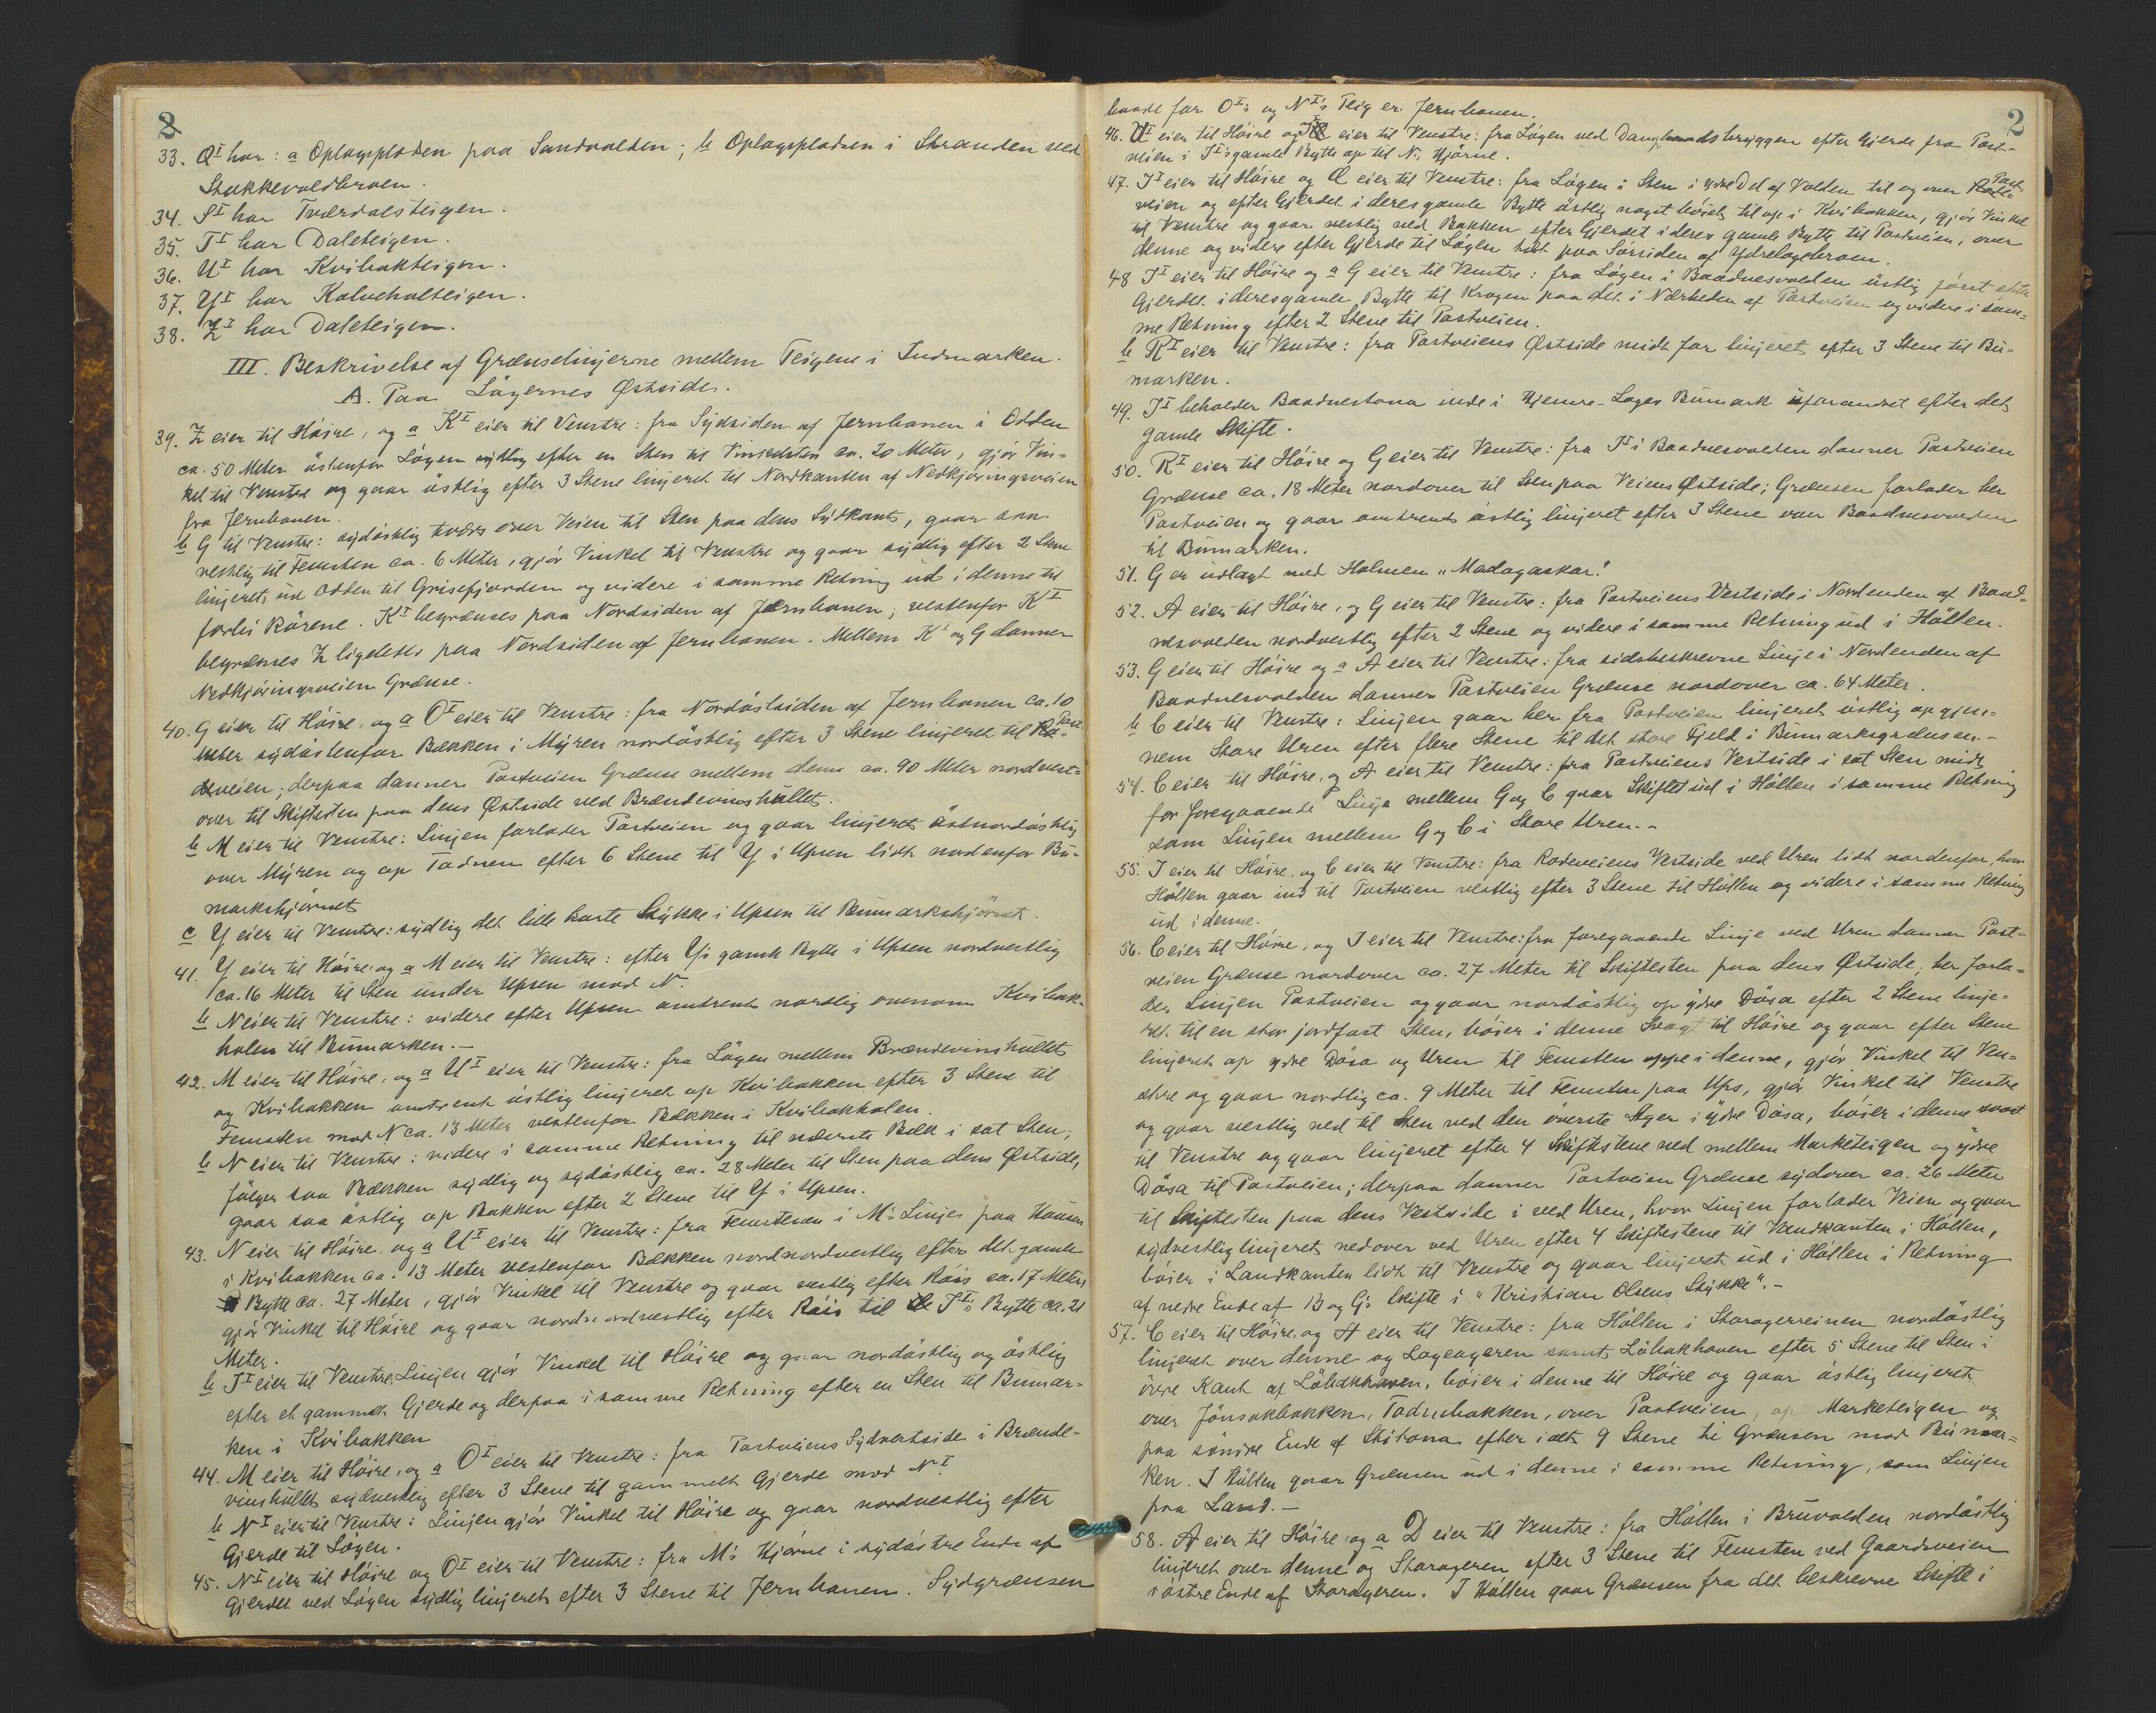 2
33. Q^I har: a Oplagspladsen paa Sandvolden; b Oplagspladsen i Stranden ved
Stokkevoldbroen.
34. S^I har Tværdalsteigen.
35. T^I har Daleteigen.
36. U^I har Kvibakteigen.
37. Y^I har Kalveholteigen.
38. Z^I har Daleteigen.
III. Beskrivelse af Grænselinjerne mellem Teigene i Indmarken.
A. Paa Lågernes Østside.
39. Z eier til Høire, og a K^I eier til Venstre: fra Sydsiden af Jernbanen i Odden
ca. 50 Meter østenfor Lågen sydlig efter en Sten til Vinkelsten ca. 20 Meter, gjør Vin-
kel til Venstre og gaar østlig efter 3 Stene linjeret til Nordkanten af Nedkjøringsveien
fra Jernbanen.
b G til Venstre: sydøstlig tværs over Veien til Sten paa dens Sydkant, gaar saa
vestlig til Femsten ca. 6 Meter, gjør Vinkel til Venstre og gaar sydlig efter 2 Stene
linjeret ud Odden til Grisefjorden og videre i samme Retning ud i denne til
forbi Rørene. K^I begrænses paa Nordsiden af Jernbanen; vestenfor K^I
begrænses Z ligeledes paa Nordsiden af Jernbanen. Mellem K^I og G danner
Nedkjøringsveien Grænse.
40. G eier til Høire, og a O^I eier til Venstre: fra Nordøstsiden af Jernbanen ca. 10
Meter sydøstenfor Bækken i Myren nordøstlig efter 3 Stene linjeret til Post-
veien; derpaa danner Postveien Grænse mellem dem ca. 90 Meter nordvest-
over til Skiftesten paa dens Østside ved Brændevinshullet.
b M eier til Venstre: Linjen forlader Postveien og gaar linjeret østnordøstlig
over Myren og op Tadnen efter 6 Stene til Y i Upsen lidt nordenfor Bu-
markshjørnet
c Y eier til Venstre: sydlig det lille korte Stykke i Upsen til Bumarkshjørnet.
41. Y eier til Høire, og a M eier til Venstre: efter Y's gamle Bytte i Upsen nordvestlig
ca. 16 Meter til Sten under Upsen mod N.
b N eier til Venstre: videre efter Upsen omtrent nordlig ovenom Kvibak-
holen til Bumarken.-
42. M eier til Høire, og a U^I eier til Venstre: fra Lågen mellem Brændevinshullet
og Kvibakken omtrent østlig linjeret op Kvibakken efter 3 Stene til
Femsten mod N ca. 13 Meter vestenfor Bækken i Kvibakholen.
b N eier til Venstre: videre i samme Retning til nærmeste Bæk i sat Sten;
følger saa Bækken sydlig og sydøstlig ca. 28 Meter til Sten paa dens Østside,
gaar saa østlig op Bakken efter 2 Stene til Y i Upsen.
43. N eier til Høire, og a U^I eier til Venstre: fra Femstenen i M's Linje paa Haugen
i Kvibakken ca. 13 Meter vestenfor Bækken nordnordvestlig efter det gamle
Bytte ca. 27 Meter, gjør Vinkel til Venstre og gaar vestlig efter Røis ca. 17 Meter,
gjør Vinkel til Høire og gaar nordnordvestlig efter Røis til T^I's Bytte ca. 21
Meter.
b T^I eier til Venstre: Linjen gjør Vinkel til Høire og gaar nordøstlig og østlig
efter et gammelt Gjerde og derpaa i samme Retning efter en Sten til Bumar-
ken i Kvibakken
44. M eier til Høire, og a O^I eier til Venstre: fra Postveiens Sydvestside i Brænde-
vinshullet sydvestlig efter 3 Stene til gammelt Gjerde mod N^I.
b N^I eier til Venstre: Linjen gjør Vinkel til Høire og gaar nordvestlig efter
Gjerde til Lågen.
45. N^I eier til Høire og O^I eier til Venstre: fra M's Hjørne i sydøstre Ende af
Gjerdet ved Lågen sydlig linjeret efter 3 Stene til Jernbanen. Sydgrænsen
2
baade for O^I's og N^I's Teig er Jernbanen.
46. U^I eier til Høire og eier til Venstre: fra Lågen ved Dampbaadsbryggen efter Gjerde fra Post-
veien i T^I's gamle Bytte op til N's Hjørne.
47. T^I eier til Høire og Q eier til Venstre: fra Lågen i Sten i ydre Del af Volden til og over Post-
veien og efter Gjerdet i deres gamle Bytte østlig noget bøiet til op i Kvibakken, gjør Vinkel
til Venstre og gaar vestlig ned Bakken efter Gjerdet i deres gamle Bytte til Postveien, over
denne og videre efter Gjerde til Lågen tæt paa Sørsiden af Ydrelagebroen.
48 T^I eier til Høire og a G eier til Venstre: fra Lågen i Baadnesvolden østlig først efter
Gjerdet i deres gamle Bytte til Krogen paa det i Nærheden af Postveien og videre i sam-
me Retning efter 2 Stene til Postveien.
b R^I eier til Venstre: fra Postveiens Østside midt for linjeret efter 3 Stene til Bu-
marken.
49. T^I beholder Baadnestona inde i Hjemre-Lages Bumark uforandret efter det
gamle Skifte.
50. R^I eier til Høire og G eier til Venstre: fra T^I i Baadnesvolden danner Postveien
Grænse ca. 18 Meter nordover til Sten paa Veiens Østside; Grænsen forlader her
Postveien og gaar omtrent østlig linjeret efter 3 Stene over Baadnesvolden
til Bumarken.
51. G er udlagt med Holmen "Madagaskar."
52. A eier til Høire, og G eier til Venstre: fra Postveiens Vestside i Nordenden af Baad-
nesvolden nordvestlig efter 2 Stene og videre i samme Retning ud i Høllen.
53. G eier til Høire og a A eier til Venstre: fra sidstbeskrevne Linje i Nordenden af
Baadnesvolden danner Postveien Grænse nordover ca. 64 Meter.
b C eier til Venstre: Linjen gaar her fra Postveien linjeret østlig op gjen-
nem Store Uren efter flere Stene til det store Fjeld i Bumarksgrænsen.-
54. C eier til Høire, og A eier til Venstre: fra Postveiens Vestside i sat Sten midt
for foregaaende Linje mellem G og C gaar Skiftet ud i Høllen i samme Retning
som Linjen mellem G og C i Store Uren.-
55. I eier til Høire, og C eier til Venstre: fra Rodeveiens Vestside ved Uren lidt nordenfor, hvor
Høllen gaar ind til Postveien vestlig efter 3 Stene til Høllen og videre i samme Retning
ud i denne.
56. C eier til Høire, og I eier til Venstre: fra foregaaende Linje ved Uren danner Post-
veien Grænse nordover ca. 27 Meter til Skiftesten paa dens Østside; her forla-
der Linjen Postveien og gaar nordøstlig op ydre Døsa efter 2 Stene linje-
ret til en stor jordfast Sten, bøier i denne svagt til Høire og gaar efter Stene
linjeret op ydre Døsa og Uren til Femsten oppe i denne, gjør Vinkel til Ven-
stre og gaar nordlig ca. 9 Meter til Femsten paa Ups, gjør Vinkel til Venstre
og gaar vestlig ned til Sten ved den øverste Ager i ydre Døsa, bøier i denne svagt
til Venstre og gaar linjeret efter 4 Skiftestene ned mellem Marketeigen og ydre
Døsa til Postveien; derpaa danner Postveien Grænse sydover ca. 26 Meter
til Skiftesten paa dens Vestside i ved Uren, hvor Linjen forlader Veien og gaar
sydvestlig linjeret nedover ved Uren efter 4 Skiftestene til Vandkanten i Høllen,
bøier i Landkanten lidt til Venstre og gaar linjeret ud i Høllen i Retning
af nedre Ende af B og G's Skifte i "Kristian Olsens Stykke".-
57. C eier til Høire, og A eier til Venstre: fra Høllen i Storagerreinen nordøstlig
linjeret over denne og Lageageren samt Løbakhaven efter 5 Stene til Sten i
øvre Kant af Løbakhaven, bøier i denne til Høire og gaar østlig linjeret
over Jønsokbakken, Tadnebakken, over Postveien, op Marketeigen og
paa søndre Ende af Skitona efter ialt 9 Stene til Grænsen mod Bumar-
ken. I Høllen gaar Grænsen ud i denne i samme Retning, som Linjen
paa Land.-
58. A eier til Høire, og a D eier til Venstre: fra Høllen i Bruvolden nordøstlig
linjeret over denne og Storageren efter 3 Stene til Femsten ved Gaardsveien
i østre Ende af Storageren. I Høllen gaar Grænsen fra det beskrevne Skifte i